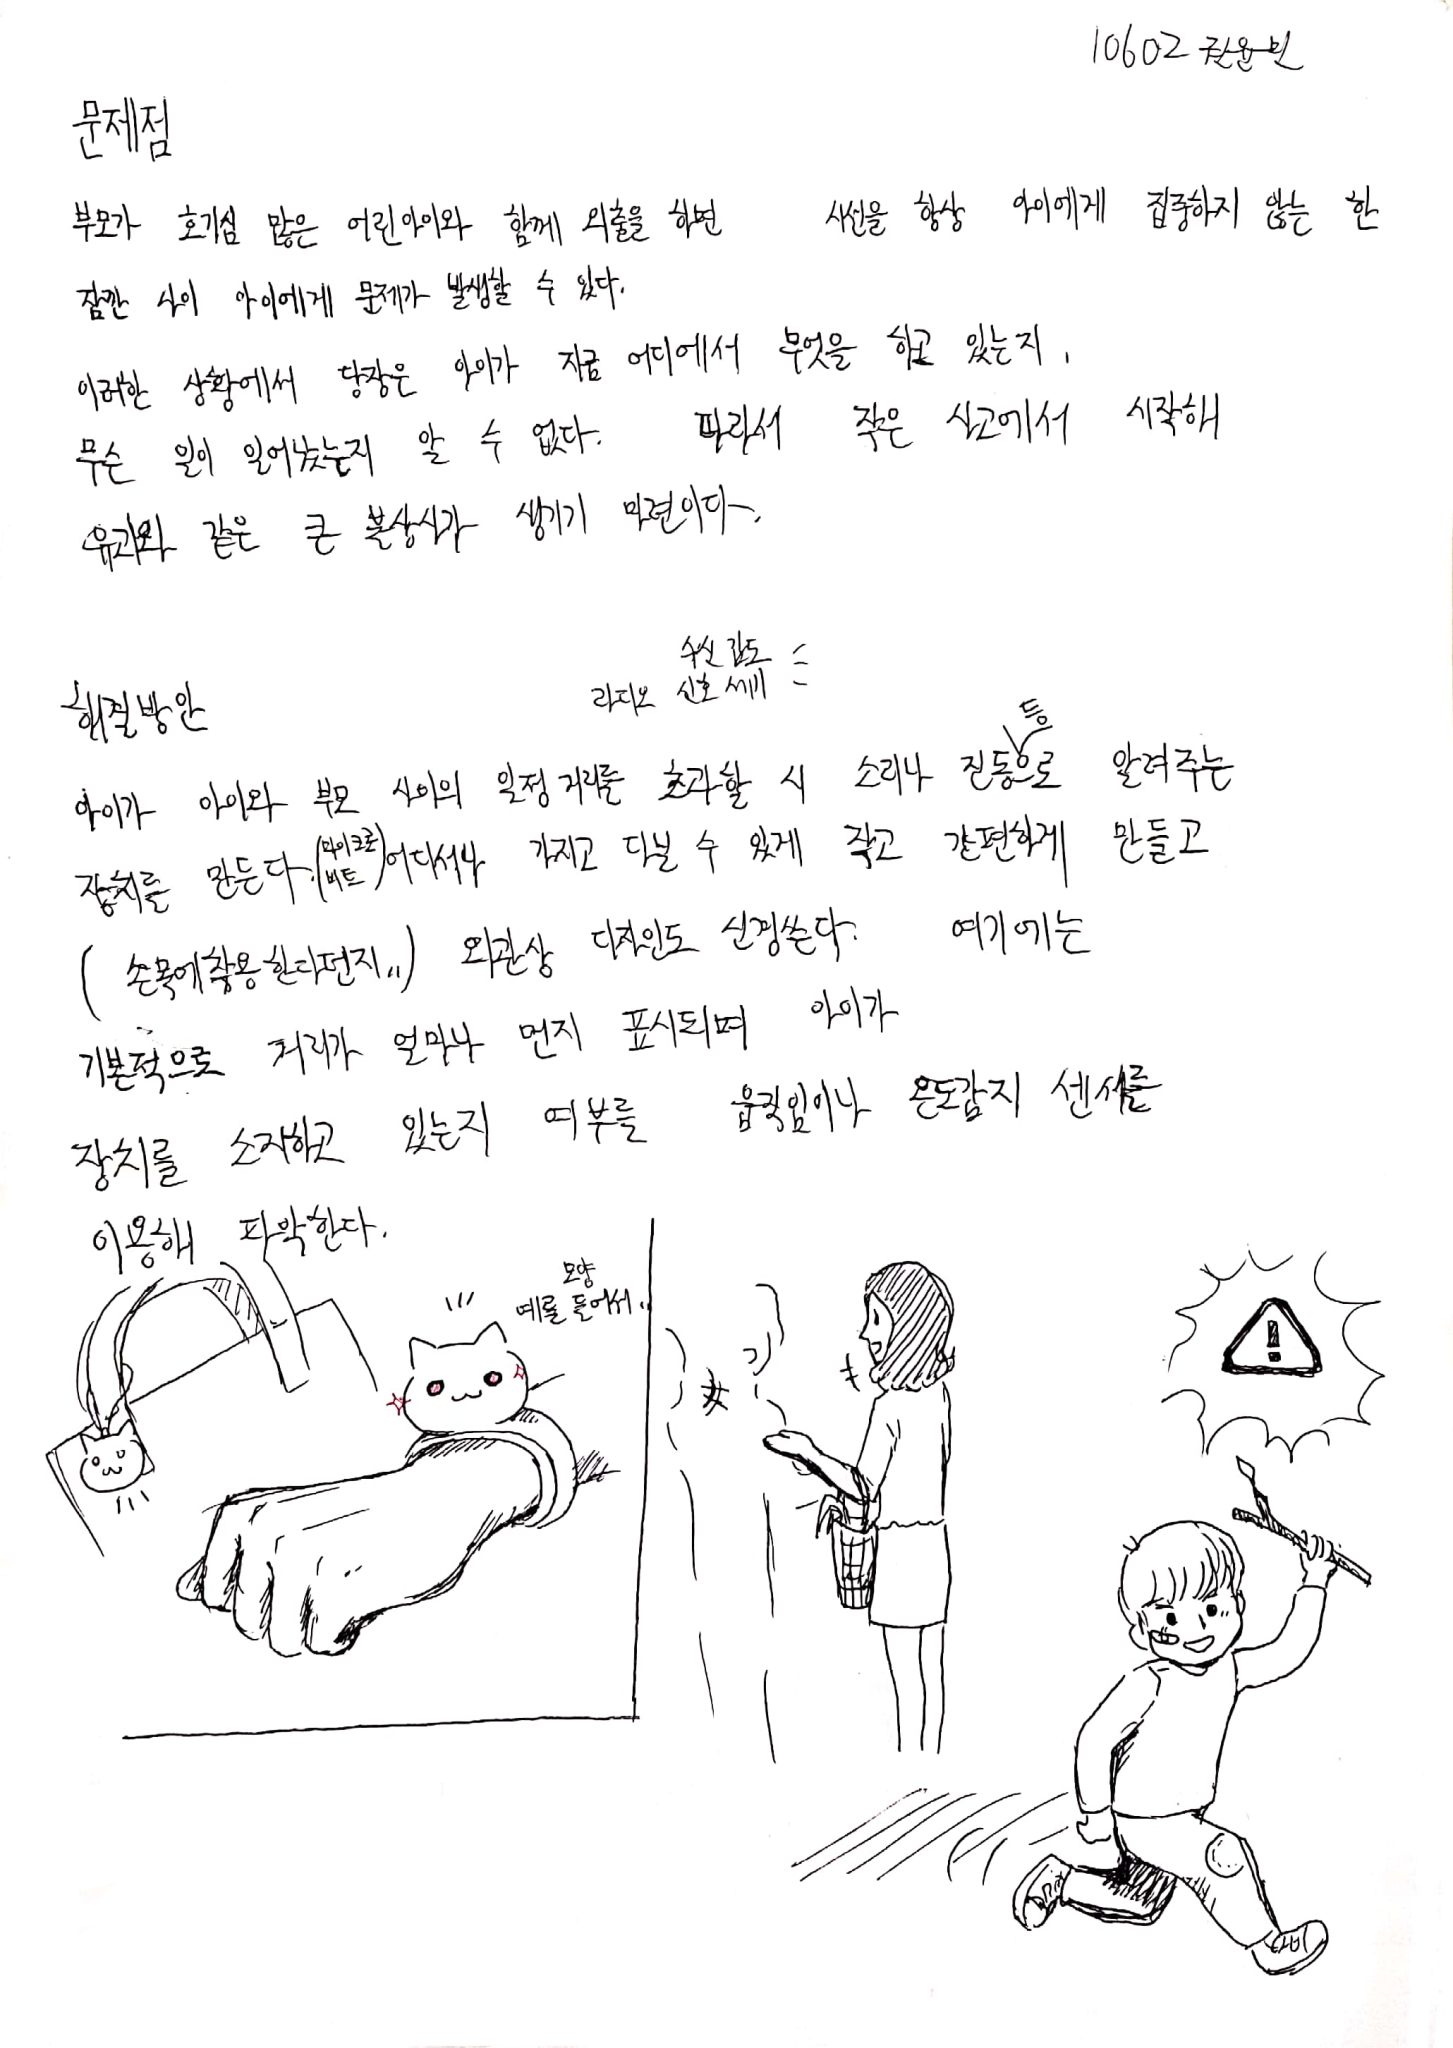 10602 권윤빈
문제점
부모가 호기심 많은 어린아이와 함께 외출을 하면 시선을 항상 아이에게 집중하지 않는 한
잠깐 사이 아이에게 문제가 발생할 수 있다.
이러한 상황에서 당장은 아이가 지금 어디에서 무엇을 하고 있는지,
무슨 일이 일어났는지 알 수 없다. 따라서 작은 사고에서 시작해
유괴와 같은 큰 불상사가 생기기 마련이다.
수신 감도
라디오 신호 세기
해결방안
등
아이가 아이와 부모 사이의 일정 거리를 초과할 시 소리나 진동으로 알려주는
장치를 만든다. (마이크로비트) 어디서나 가지고 다닐 수 있게 작고 간편하게 만들고
(손목에 착용한다던지..) 외관상 디자인도 신경쓴다. 여기에는
기본적으로 거리가 얼마나 먼지 표시되며 아이가
장치를 소지하고 있는지 여부를 움직임이나 온도감지 센서를
이용해 파악한다.
모양
예를 들어서..
!